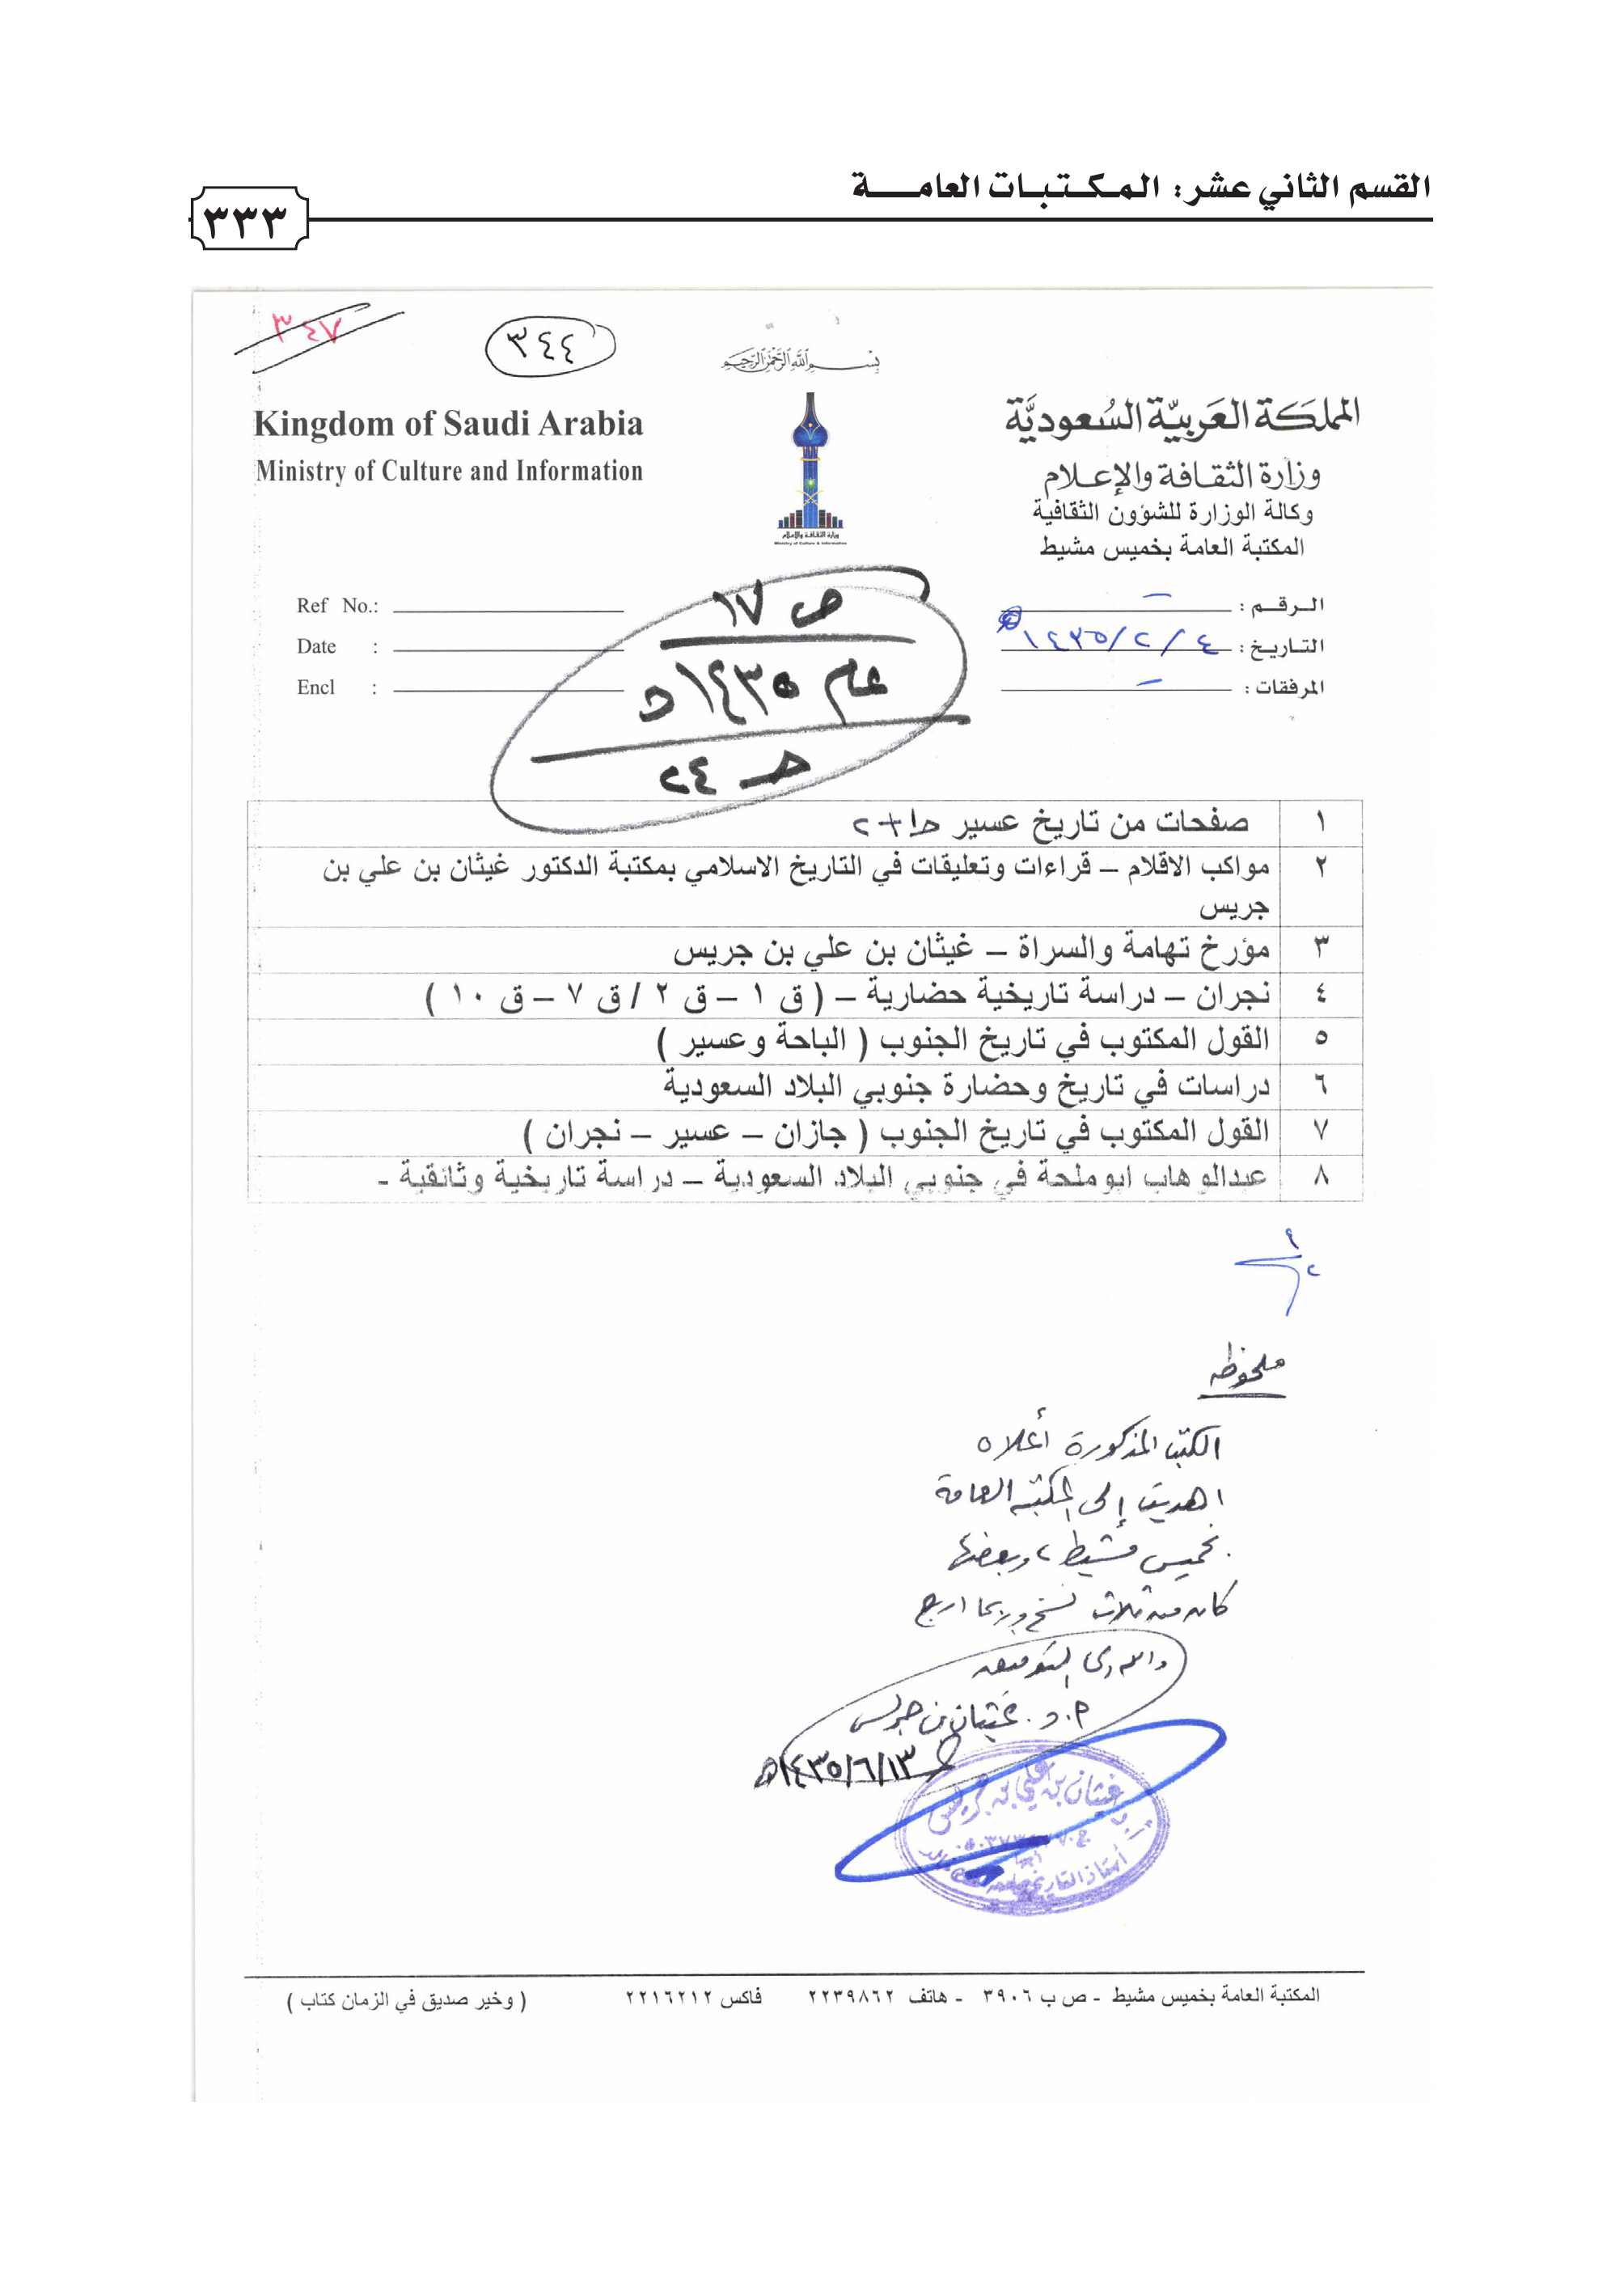 القسم الثاني عشر: المكتبات العامة
٣٣٣
٣٤٧
٣٤٤
بسم الله الرحمن الرحيم
المملكة العربية السعودية
وزارة الثقافة والإعلام
وكالة الوزارة للشؤون الثقافية
المكتبة العامة بخميس مشيط
Kingdom of Saudi Arabia
Ministry of Culture and Information
وزارة الثقافة والإعلام
Ministry of Culture & Information
الرقم : –
التاريخ : ٤ / ٢ / ١٤٣٥
المرفقات : –
Ref No.:
Date :
Encl :
ص ١٧
عام ١٤٣٥هـ
حـ ٢٤
١ صفحات من تاريخ عسير ط١+٢
٢ مواكب الاقلام – قراءات وتعليقات في التاريخ الاسلامي بمكتبة الدكتور غيثان بن علي بن
جريس
٣ مؤرخ تهامة والسراة – غيثان بن علي بن جريس
٤ نجران – دراسة تاريخية حضارية – ( ق ١ – ق ٢ / ق ٧ – ق ١٠ )
٥ القول المكتوب في تاريخ الجنوب ( الباحة وعسير )
٦ دراسات في تاريخ وحضارة جنوبي البلاد السعودية
٧ القول المكتوب في تاريخ الجنوب ( جازان – عسير – نجران )
٨ عبدالوهاب ابوملحة في جنوبي البلاد السعودية – دراسة تاريخية وثائقية -
ملحوظه
الكتب المذكورة أعلاه
اهديت إلى المكتبه العامة
بخميس مشيط، وبعضها
كان منه ثلاث نسخ وربما اربع
والله ولي التوفيق
أ.د. غيثان بن جريس
١٤٣٥/٦/١٣هـ
أ.د. غيثان بن علي بن جريس
أستاذ التاريخ
المكتبة العامة بخميس مشيط - ص ب ٣٩٠٦ - هاتف ٢٢٣٩٨٦٢ فاكس ٢٢١٦٢١٢ ( وخير صديق في الزمان كتاب )